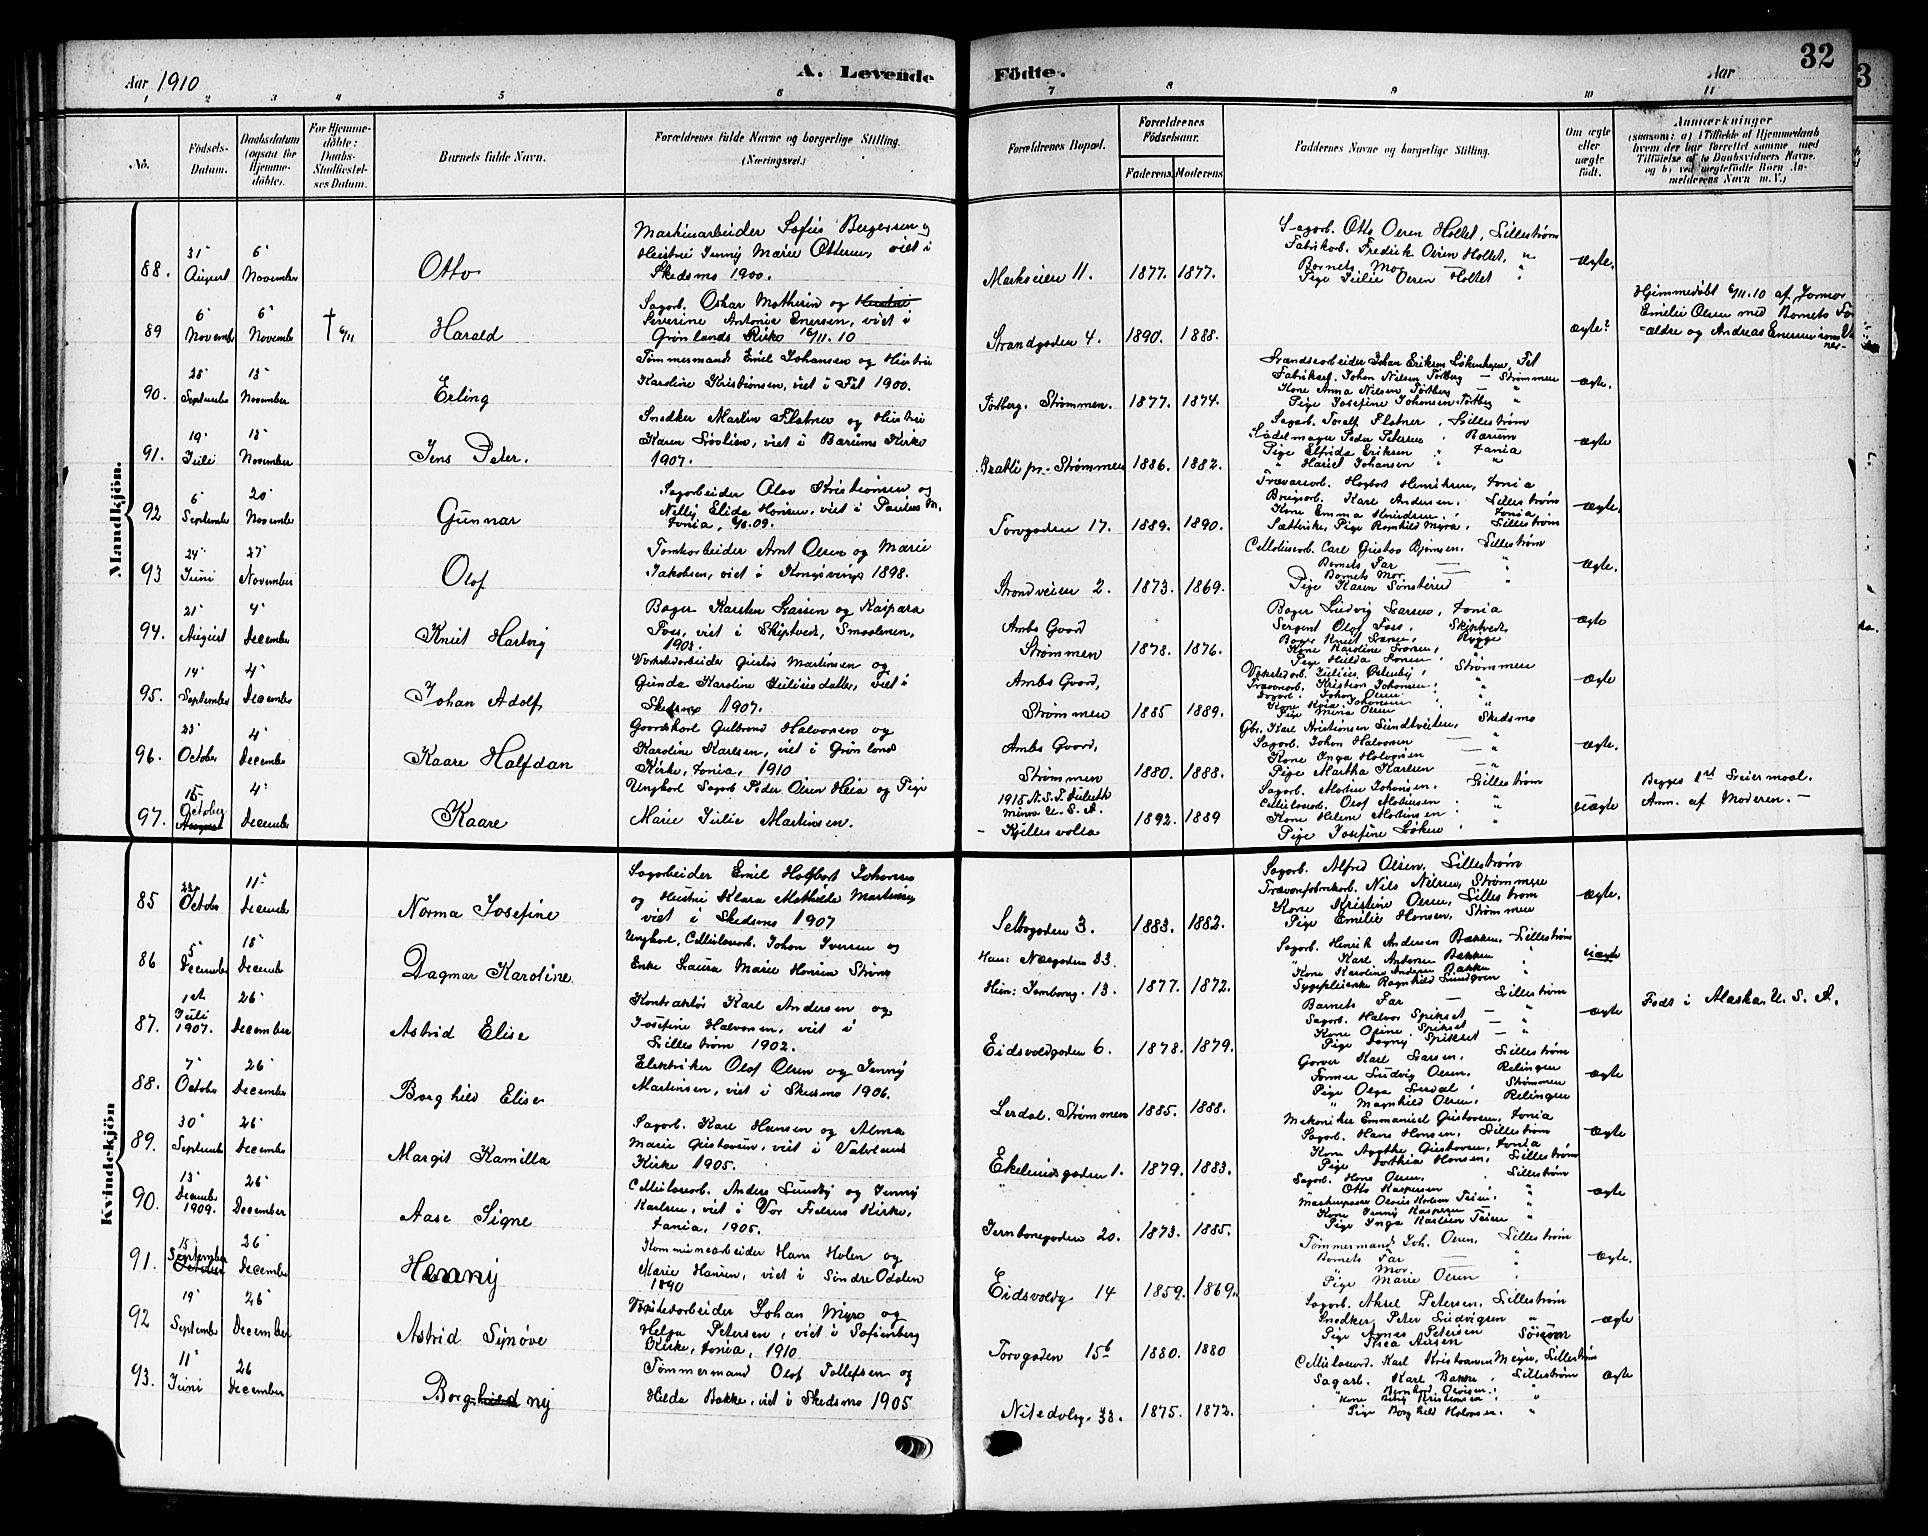 Aar 1910
A. Levende
Födte.
Aar
32
1 2 3 4 5 6 7 8 9 10 11
No.
Födsels-
Datum.
Daabsdatum
(ogsaa for
Hjemme-
döbte).
For Hjemme-
döbte:
Daabs-
Stadfæstel-
ses Datum.
Barnets fulde Navn.
Forældrenes fulde Navne og borgerlige Stilling.
(Næringsvei.)
Forældrenes Bopæl.
Forældrenes
Födselsaar.
Faderens. Moderens
Faddernes Navne og borgerlige Stilling.
Om ægte
eller
uægte
födt.
Anmærkninger
(saasom: a) i Tilfælde af Hjemmedaab
hvem der har forrettet samme med
Tilföielse af to Daabsvidners Navne.
og b) ved uægtefödte Börn An-
melderens Navn m. V.)
Mandkjön.
88.
31
August
6
November
Otto
Maskinarbeider Sofus Bergersen og
Hustru Jenny Marie Ottersen, viet i
Skedsmo 1900.
Markveien 11.
1877. 1877.
Sagarb. Otto Olsen Holtet, Lillestrøm
Fabrikarb. Fredrik Olsen Holtet, "
Barnets Mor "
Pige Julie Olsen Holtet "
ægte.
89
6
November
6
November
† 6/11
Harald
Sagarb. Oskar Mathisen og Hustru
Severine Antonie Enersen, viet i
Grønlands Kirke 16/11. 10
Strandgaden 4.
1890. 1888.
ægte?
Hjemmedøbt 6/11. 10 af Jomor
Emelie Olsen med Barnets For-
-ældre og Andreas Enersen som
90.
28
September
13
November
Erling
Tømmermand Emil Johansen og Hustru
Karoline Kristiansen, viet i Fet 1900.
Tortberg. Strømmen.
1877. 1874.
Fabrikarb. Johan Nilsen Tortberg — Strømmen
Kone Anna Nilsen Tortberg — "
Pige Josefine Johansen Tortberg "
ægte.
91.
19
Juli
13
November
Jens Peter.
Snedker Martin Flatner og Hustru
Karen Lövlien, viet i Bærums Kirke
1907.
Bratli pr. Strømmen
1886. 1882.
Sagarb. Toralf Flatner, Lillestrøm
Sadelmager Peder Petersen " Bærum
Pige Elfrida Eriksen " Xania
" Hariet Johansen " "
ægte
92
6
September
20
November
Gunnar
Sagarbeider Olav Kristiansen og
Nelly Elida Hansen, viet i Paulus M.
Torvgaden 17.
1889. 1890.
Trævarearb. Hagbart Henriksen, Xania
Brugsarb. Karl Andersen. Lillestrøm
Kone Emma Knudsen. Xania
Pige Ragnhild Myra. Lillestrøm
ægte.
93
24
Juni
27
November
Olof
Tomtearbeider Arnt Olsen og Marie
Jakobsen, viet i Kongsvinger 1898.
Strandveien 2.
1873. 1869.
Cellulosearb. Carl Gustav Bjørnsen. Lillestrøm
Barnets Far — "
Barnets Mor — "
Pige Karen Sønsterud "
ægte.
94.
21
August
4
December
Knut Hartvig
Bager Karsten Larsen og Kaspara
Foss, viet i Skiptvedt, Smaalenene,
1903.
Ambs Gaard
Strømmen
1878. 1876.
Bager Ludvig Larsen, Xania
Sergent Olof Foss, Skiptvedt
Bager Knut Larsen, Rygge
Kone Karoline Larsen,
Pige Hulda Larsen, "
ægte
95.
14
September
4
December
Johan Adolf
Værkstedarbeider Gustav Martinsen og
Gunda Karoline Juliusdatter, viet i
Skedsmo 1907.
Ambs Gaard,
Strømmen
1885 1889.
Strømmen
Trævarearb. Kristian Johansen. "
Sagarb. Johan Olsen "
Pige Mina Olsen "
ægte
96.
23
October
4
December
Kaare Halfdan
Gaardskarl Gulbrand Halvorsen og
Karoline Karlsen, viet i Grønlands
Kirke, Xania, 1910
Ambs Gaard,
Strømmen
1880. 1888.
Gbr. Karl Kristiansen Sundtveiten, Skedsmo
Sagarb. Johan Halvorsen — "
Kone Inga Halvorsen
Pige Martha Karlsen — "
ægte.
97.
15
October
August
4
December
Kaare
Ungkarl Sagarb Peder Olsen Heia og Pige
Marie Julie Martinsen.
Minn. U. S. A.
Kjellesvolla
1892. 1889
Sagarb. Martin Johansen. Lillestrøm
Cellulosearb. Olof Martinsen "
Kone Helene Martinsen "
Pige Josefine Løken "
uægte
Begges 1ste Leiermaal.
Anm. af Moderen. —
Kvindekjön
85
23
October
11
December
Norma Josefine
Sagarbeider Emil Hagbart Johansen
og Hustru Klara Mathilde Martinsen
viet i Skedsmo 1907
Solbogaden 3.
1883. 1882.
Sagarb. Alfred Olsen, Lillestrøm
Trævarefabrikarb. Nils Nilsen, Strømmen
Kone Kristine Olsen, Lillestrøm
Pige Emilie Hansen, Strømmen
ægte.
86
5
December
18
December
Dagmar Karoline
Ungkarl, Cellulosearb. Johan Iversen og
Enke Laura Marie Hansen Strøm
Han: Næsgaden 33.
Hun: Jernbaneg. 13.
1877. 1872.
Sagarb. Henrik Andersen Bakken. Lillestrøm
" Karl Andersen Bakken "
Kone Karoline Andersen Bakken "
Sygepleierske Ragnhild Lundgren "
uægte
87.
1st
Juli
1907.
26
December
Astrid Elise
Kontraktör Karl Andersen og
Josefine Halvorsen, viet i
Lillestrøm 1902.
Eidsvoldgaden 6.
1878. 1879.
Barnets Far — Lillestrøm
Sagarb. Halvor Spikset — "
Kone Oline Spikset — "
Pige Dagny Spikset — "
ægte
Født i Alaska. U. S. A.
88.
7
October
26
December
Borghild Elise
Elektriker Olof Olsen og Jenny
Martinsen, viet i Skedsmo 1906.
Lerdal. Strømmen
1885. 1888.
Garver Karl Larsen. Lillestrøm
Former Ludvig Olsen. Rælingen
Pige Olga Lerdal Strømmen
" Magnhild Olsen. Rælingen
ægte
89.
30
September
26
December
Margit Kamilla
Sagarb. Karl Hansen og Alma
Marie Gustavsen, viet i Vaalerens
Kirke 1905.
Ekelundsgaden 1.
1879. 1883.
Mekaniker Emmanuel Gustavsen, Xania
Sagarb. Hans Hansen. Lillestrøm
Kone Agathe Gustavsen, Xania
Pige Dorthea Hansen, Lillestrøm
ægte
90.
13
December
1909.
26
December
Aase Signe
Cellulosearb. Anders Lundby og Jenny
Karlsen, viet i Vor Frelsers Kirke,
Xania, 1905.
Jernbanegaden 20.
1873. 1885.
Sagarb. Hans Olsen. Lillestrøm
Otto Kaspersen "
Kone Jenny Kaspersen "
Pige Inga Karlsen Teien "
ægte
91.
18
September
October
26
December
Henny
Kommunearbeider Hans Holen og
Marie Hansen, viet i Søndre Odalen
1890
Eidsvoldg 14
1859. 1869.
Tømmermand Joh. Olsen. Lillestrøm
Barnets Far — "
" Mor. — "
Pige Marie Olsen "
ægte.
92
19
September
26
December
Astrid Synøve
Værkstedarbeider Johan Myro og
Helga Petersen, viet i Sofienberg
Kirke, Xania, 1910
Torvgaden 15b
1880. 1880
Sagarb. Aksel Petersen, Lillestrøm
Snedker Peter Ludvigsen "
Pige Agnes Petersen
ægte
93.
11
Juni
26
December
Borghild ny
Tømmermand Olof Tollefsen og
Hilda Bakke, viet i Skedsmo 1905
Nitedalsg. 33.
1875. 1872.
Cellulosearb. Karl Kristiansen Meyer, Lillestrøm
Sagarb. Karl Bakke. Lillestrøm
Pige Borghild Halvorsen. "
ægte